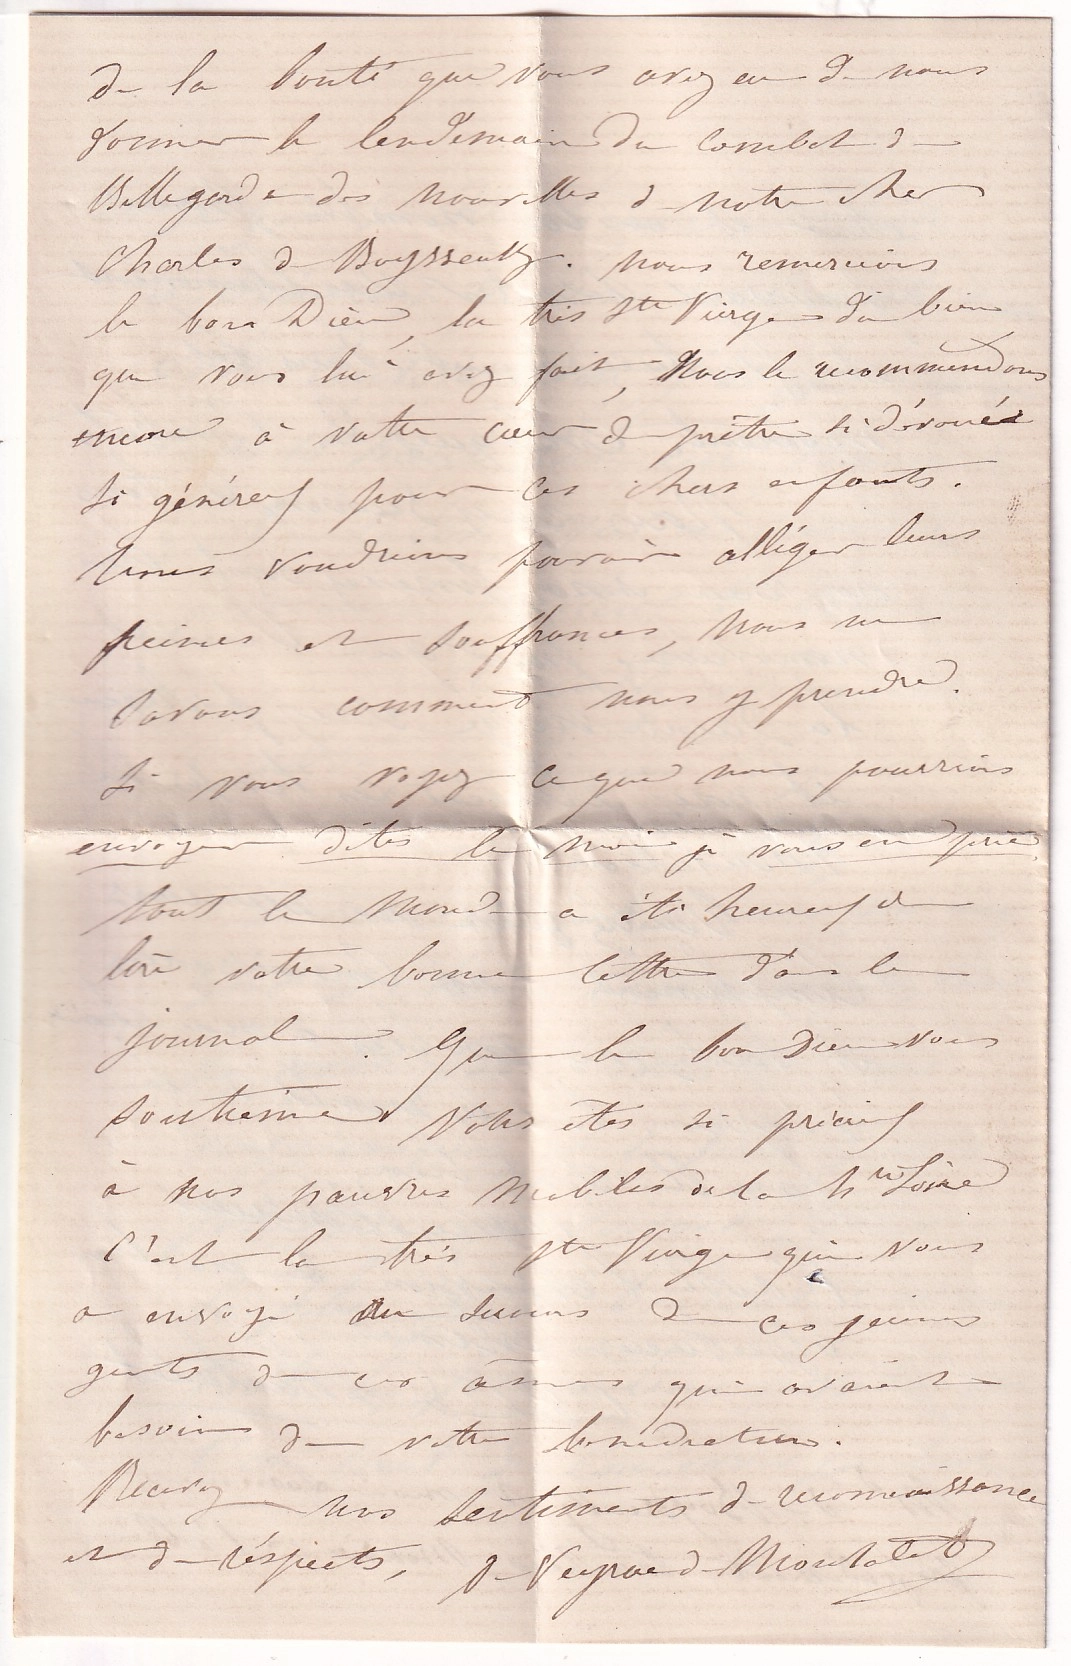 de la bonté que vous avez eu de nous
donner le lendemain du combat de
Bellegarde des nouvelles de notre cher
Charles de Boysseulh. nous remercions
le bon Dieu, la très Ste Vierge du bien
que vous lui avez fait, Nous le recommandons
encore à votre cœur de prêtre si dévoué
si généreux pour ces chers enfants.
Nous voudrions pouvoir alléger leurs
peines et souffrances, nous ne
savons comment nous y prendre.
Si vous voyez ce que nous pourrions
envoyer dites le moi je vous en prie.
tout le monde a été heureux de
lire votre bonne lettre dans le
journal. Que le bon Dieu vous
soutienne Vous êtes si précieux
à nos pauvres mobiles de la hte Loire
C'est la très Ste Vierge qui vous
a envoyé au secours de ces jeunes
gents de ces âmes qui avaient
besoin de votre bénédiction.
Recevez nos sentiments de reconnaissance
et de réspects, de